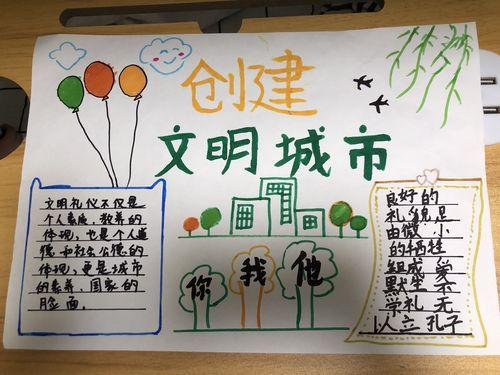 创建
文明城市
文明礼仪不仅是
个人素质、教养的
体现，也是个人道
德和社会公德的
体现，更是城市
的素养、国家的
脸面。
你我他
良好的
礼貌是
由微小
的牺牲
组成 爱
默生 不
学礼 无
以立 孔子